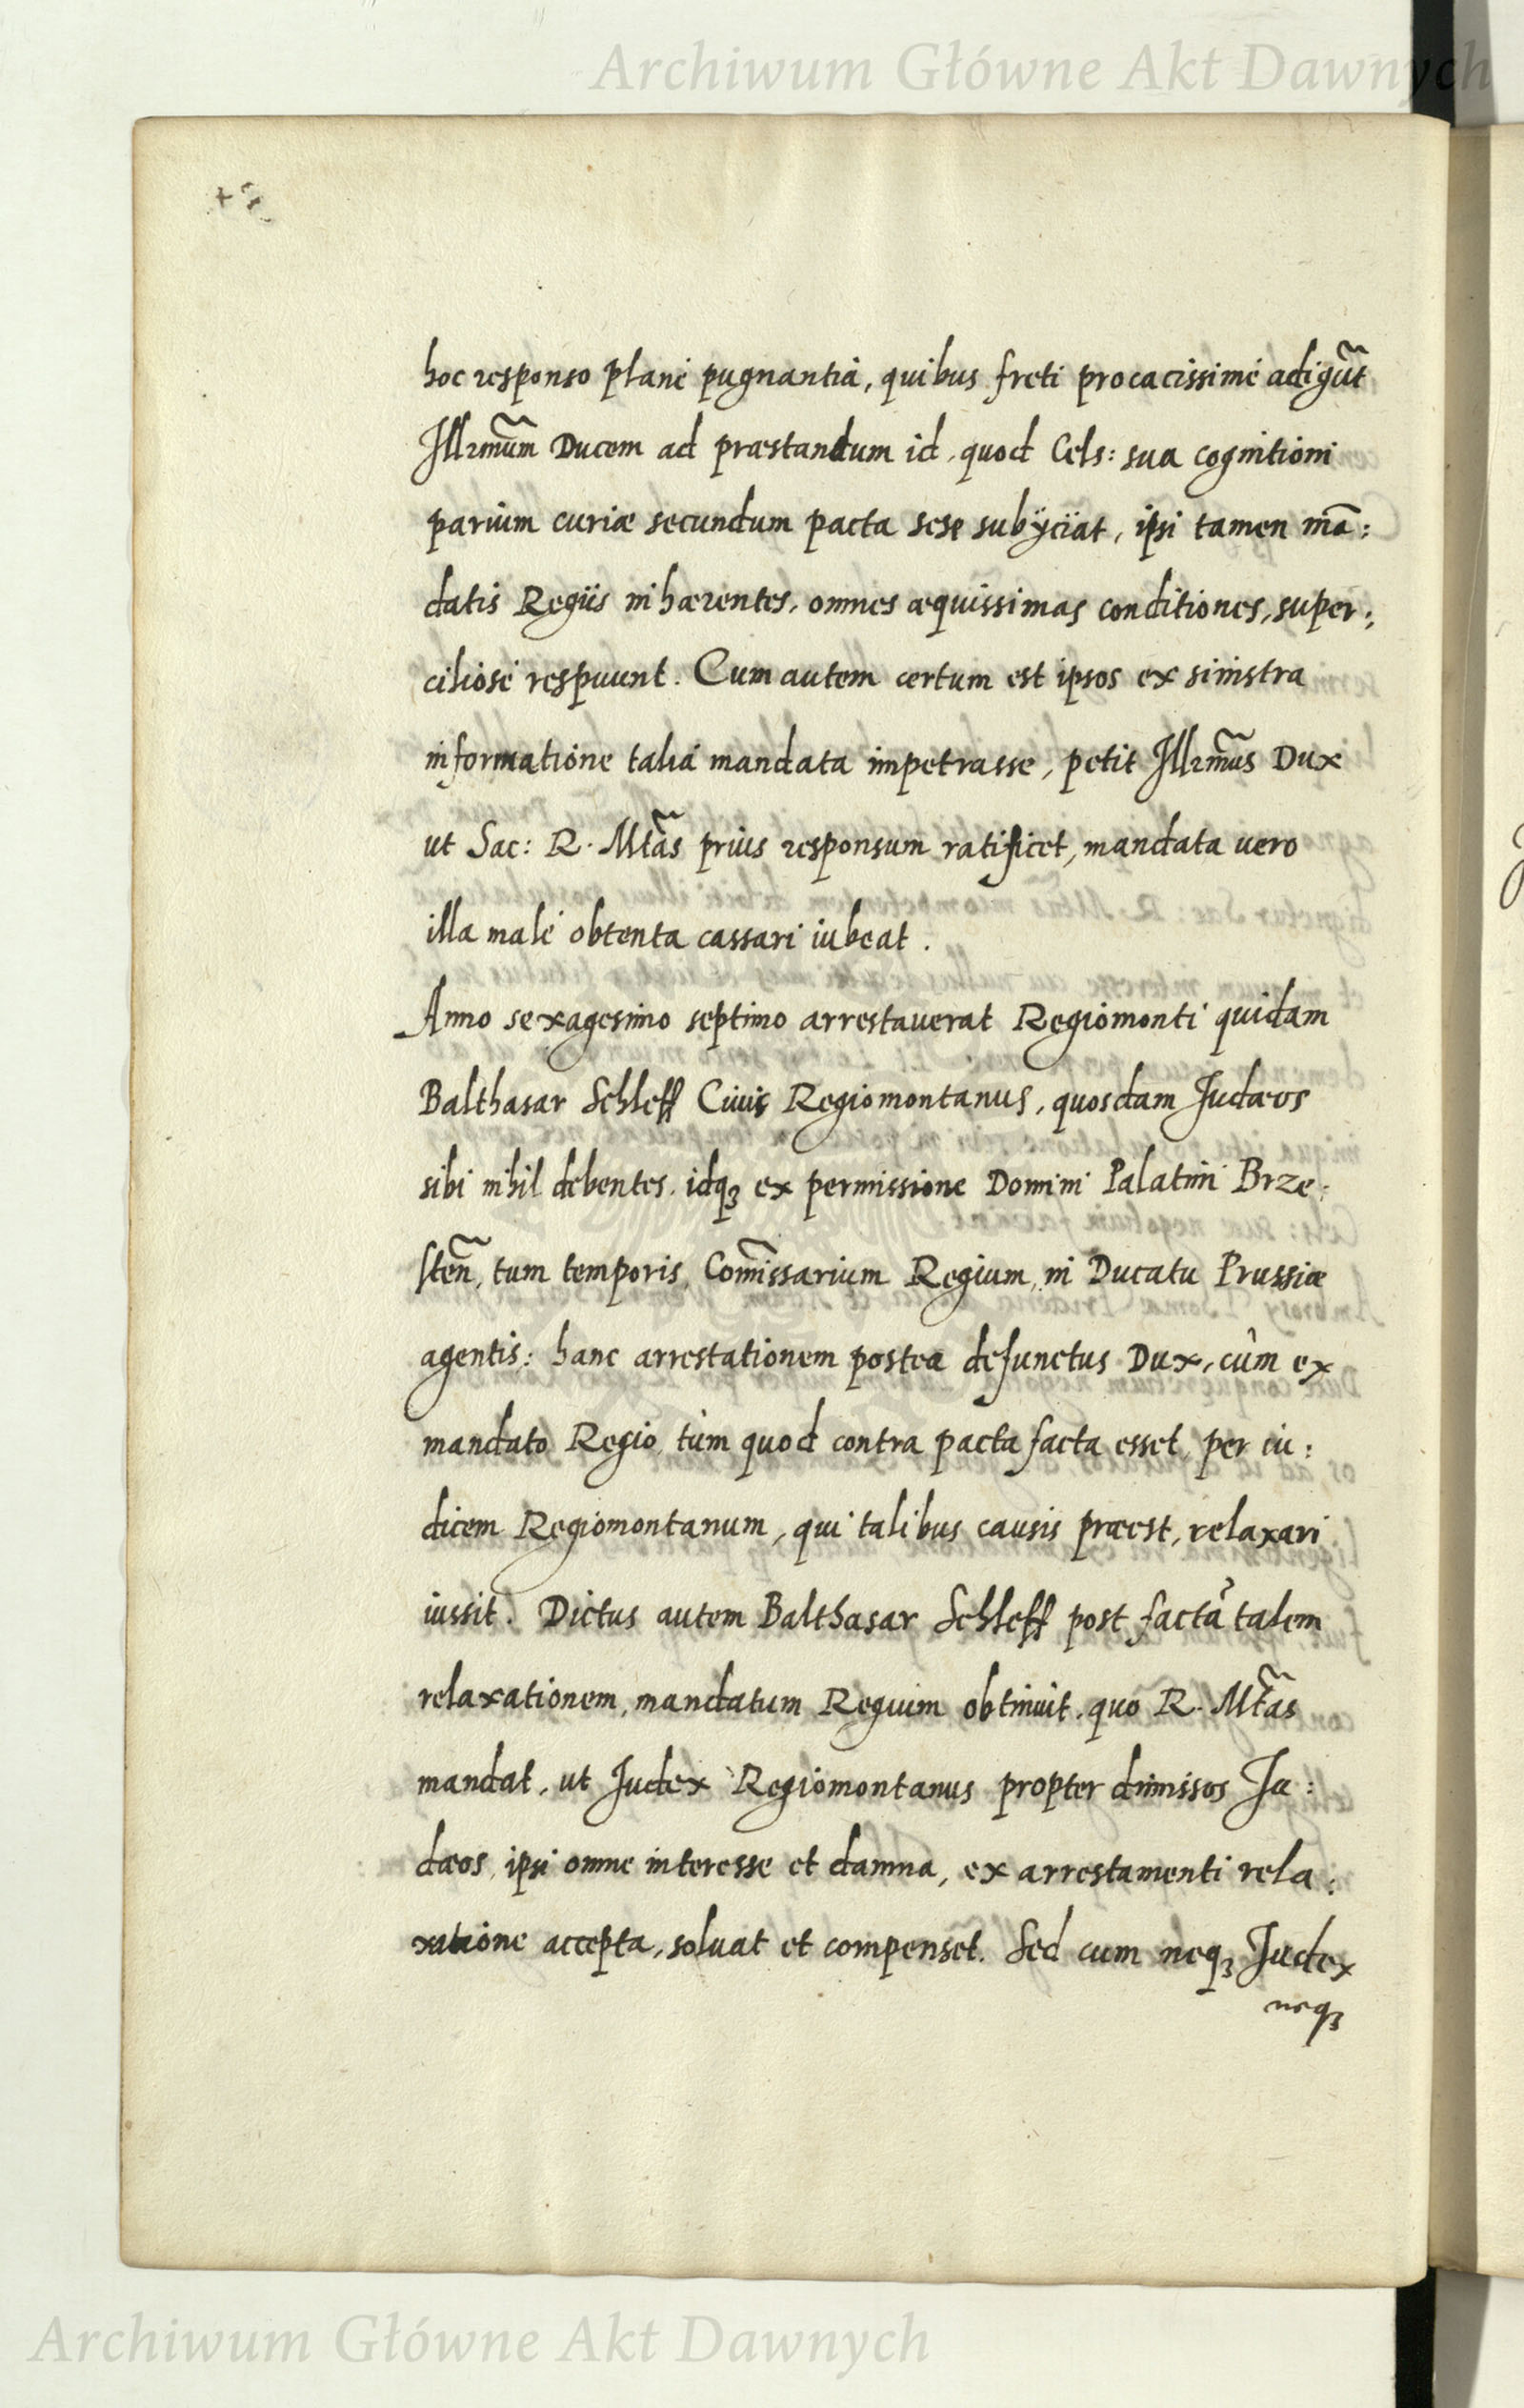 Archiwum Główne Akt Dawnych
hoc responso planè pugnantia, quibus freti procacissimè adigũt
Illrmũm Ducem ad præstandum id, quod Cels: sua cognitioni
parium curiæ secundum pacta sese subÿciat, ipsi tamen mã:
datis Regiis inhærentes, omnes æquissimas conditiones, super:
ciliosè respuunt. Cum autem certum est ipsos ex sinistra
informatione talia mandata impetrasse, petit Illrm̃us Dux
ut Sac: R. Mtãs prius responsum ratificet, mandata uero
illa malè obtenta cassari iubeat.
Anno sexagesimo septimo arrestauerat Regiomonti quidam
Balthasar Schleff Ciuis Regiomontanus, quosdam Judæos
sibi nihil debentes, idqꝫ ex permissione Domini Palatini Brze:
steñ, tum temporis, Com̃issarium Regium, in Ducatu Prussiæ
agentis: hanc arrestationem postea defunctus Dux, cùm ex
mandato Regio, tùm quod contra pacta facta esset, per iu:
dicem Regiomontanum, qui talibus causis præest, relaxari
iussit. Dictus autem Balthasar Schleff post factã talem
relaxationem, mandatum Regium obtinuit, quo R. Mtãs
mandat, ut Judex Regiomontanus propter dimissos Ju:
dæos, ipsi omne interesse et damna, ex arrestamenti rela:
xatione accepta, soluat et compenset. Sed cum neqꝫ Judex
neqꝫ
Archiwum Główne Akt Dawnych